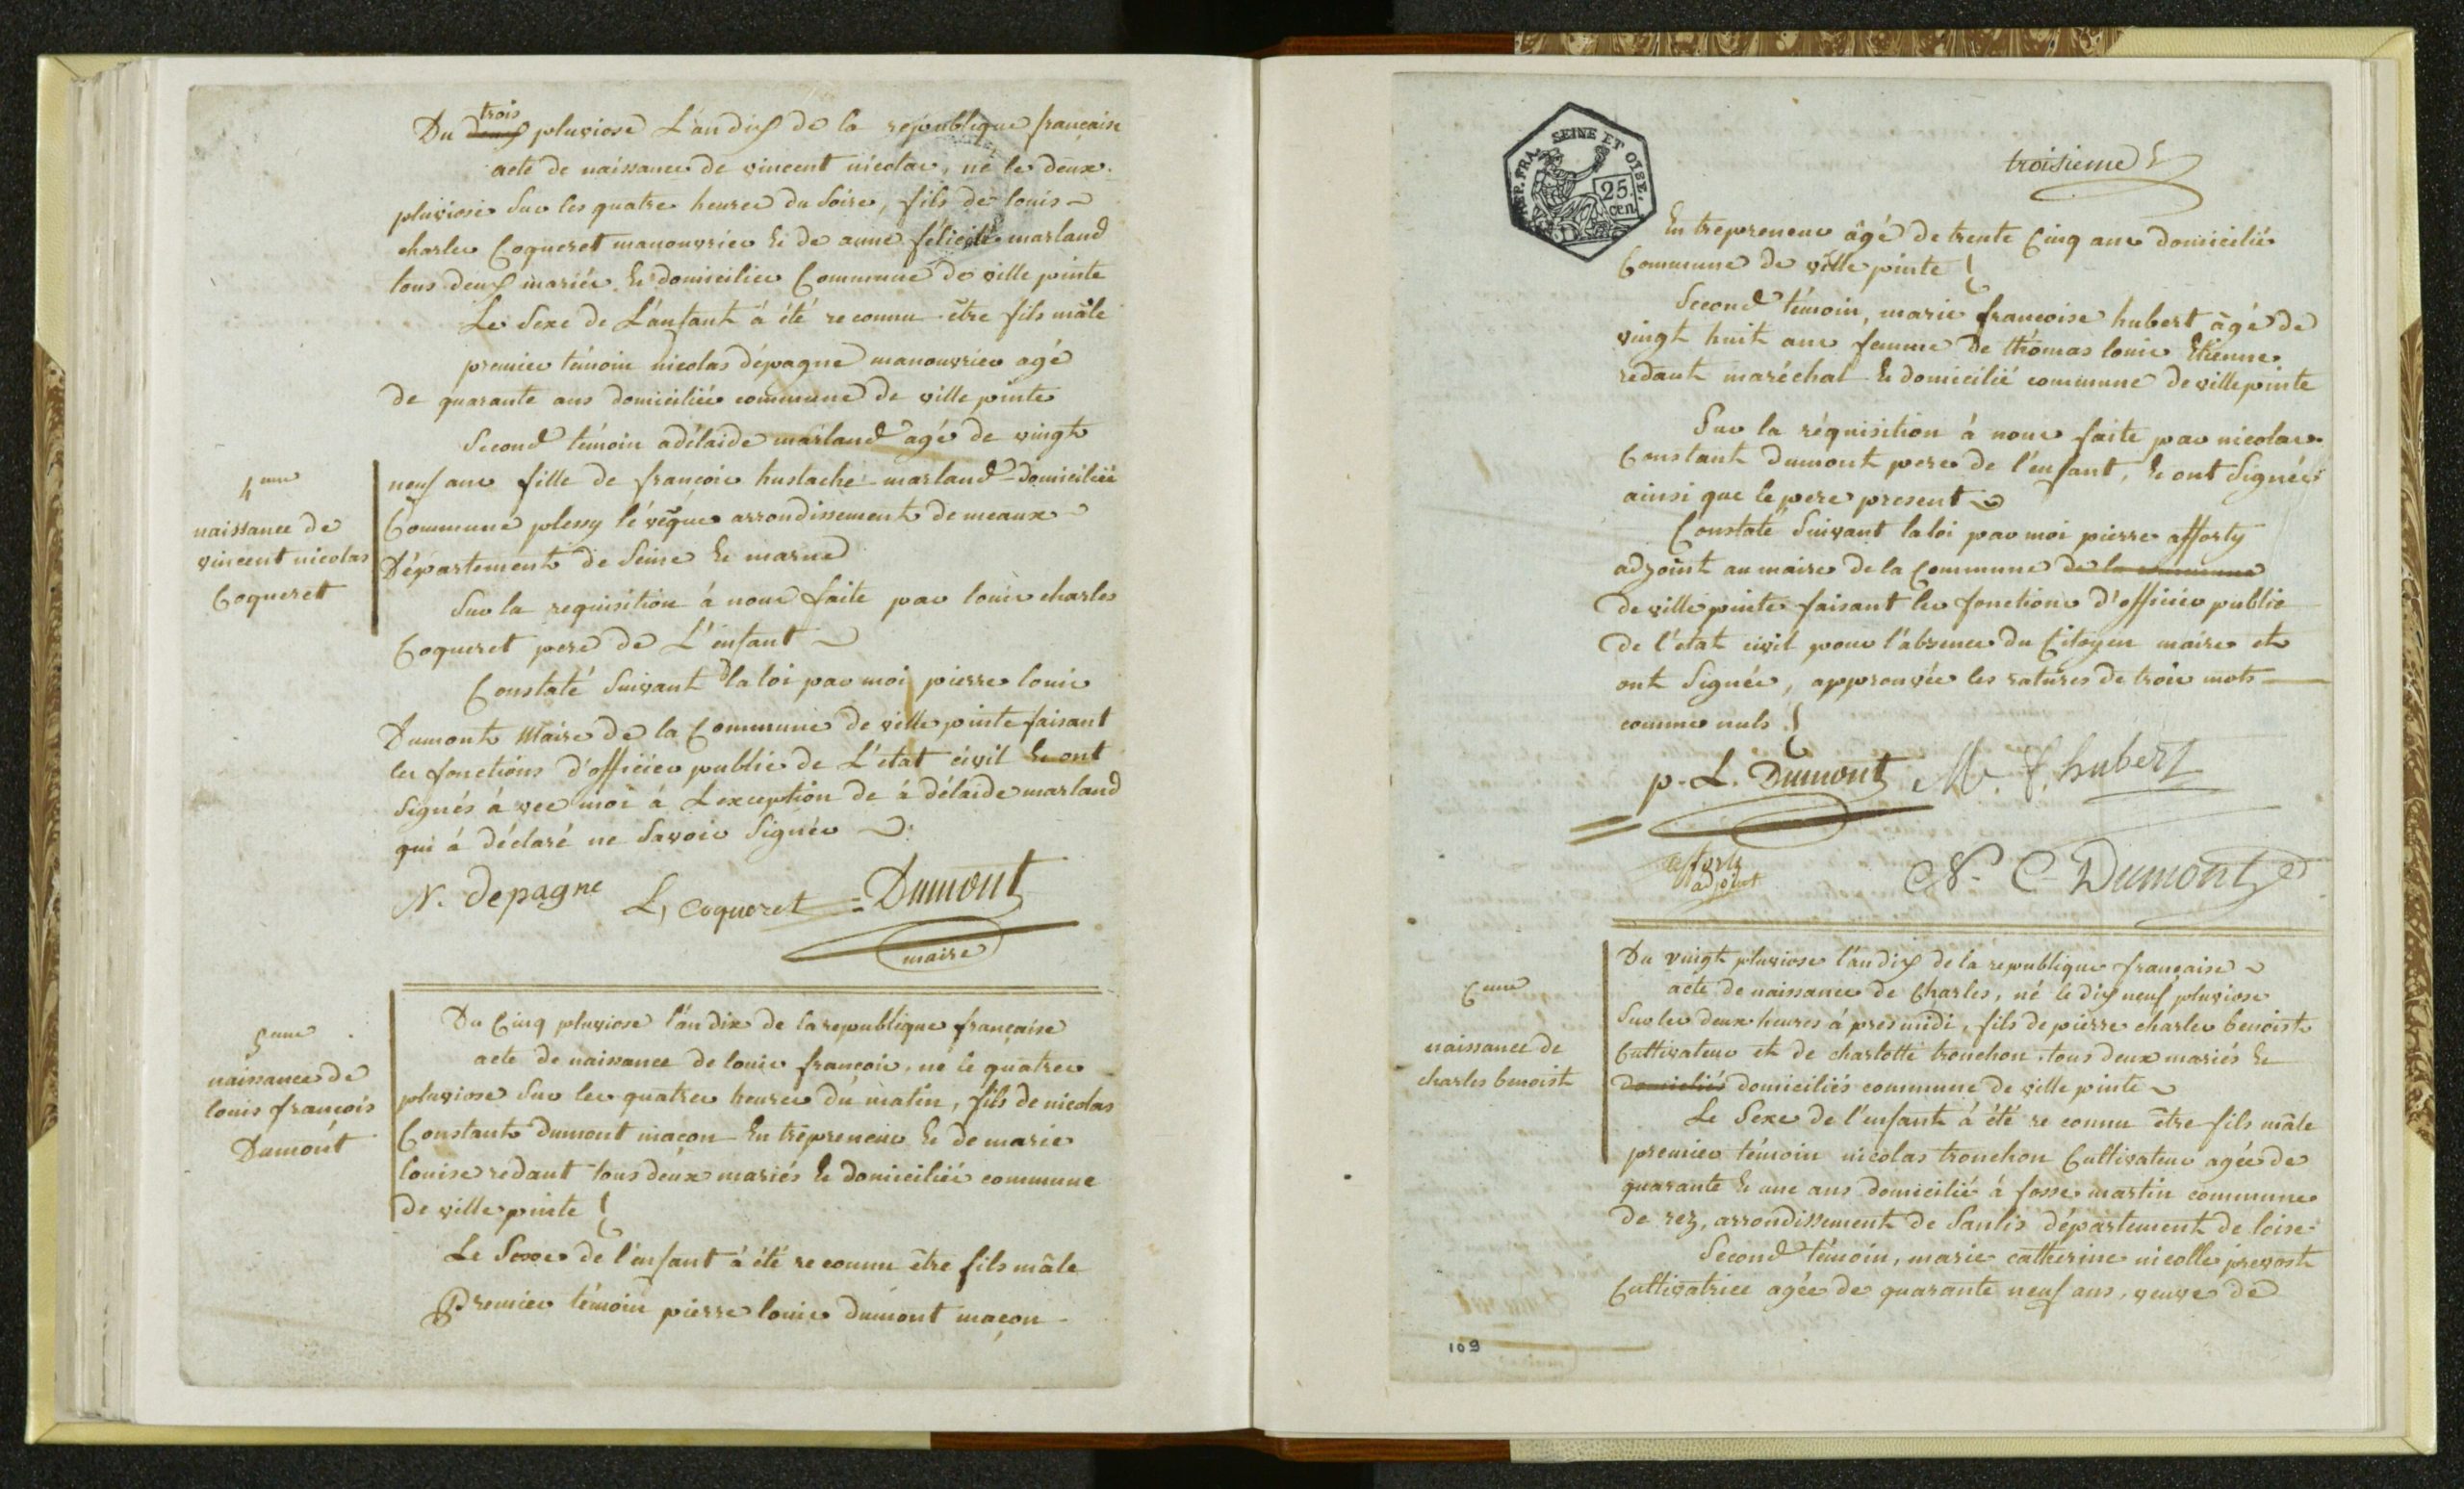 trois
Du deux pluviose L'an dix de la republique française
acte de naissance de vincent nicolas, né le deux
pluviose sur les quatre heures du soire, fils de louis
charles Coqueret manouvrier & de anne félicité marland
tous deux mariés & domiciliés Commune de ville pinte
Le Sexe de L'anfant à été reconnu être fils mâle
premier témoin nicolas dépagne manouvrier agé
de quarante ans domiciliée commune de ville pinte
Second témoin adélaide marland agé de vingt
neuf ans fille de françois hustache marland domiciliée
Commune plessy l'évêque arrondissement de meaux
Département de Seine & marne
Sur la requisition à nous faite par louis charles
Coqueret pere de L'enfant
Constaté Suivant la loi par moi pierre louis
Dumont Maire de la Commune de ville pinte faisant
les fonctions d'officier public de L'état civil & ont
Signés à vec moi à L'exception de à délaide marland
qui à déclaré ne Savoir Signér
N. depagne L, coqueret Dumont
maire
4eme
naissance de
vincent nicolas
Coqueret
5eme
naissance de
louis françois
Dumont
Du Cinq pluviose l'an dix de la republique française
acte de naissance de louis françois, né le quatre
pluviose Sur les quatre heures du matin, fils de nicolas
Constant Dumont maçon Entrepreneur & de marie
louise redant tous deux mariés & domiciliés commune
de ville pinte
Le Sexe de l'enfant à été re connu être fils mâle
Premier témoin pierre louis dumont maçon
REP. FRA. SEINE ET OISE.
25.
cen
troisieme
Entrepreneur âgé de trente Cinq ans domiciliée
Commune de ville pinte
Second témoin, marie francoise hubert âgé de
vingt huit ans femme de thomas louis Etienne
redant maréchal & domicilié commune de ville pinte
Sur la réquisition à nous faite par nicolas
Constant dumont pere de l'enfant, & ont Signées
ainsi que le pere present
Constaté Suivant la loi par moi pierre afforty
adjoint au maire de la Commune de la commune
de ville pinte faisant les fonctions d'officier public
de l'état civil pour l'absence du Citoyen maire et
ont Signée, approuvée les ratures de trois mots
comme nuls
p. L. Dumont M. f. hubert
afforty
adjoint
N. C Dumont
6eme
naissance de
charles benoist
Du vingt pluviose l'an dix de la republique française
acte de naissance de Charles, né le dix neuf pluviose
Sur les deux heures à pres midi, fils de pierre charles benoist
Cultivateur et de charlotte tronchon tous deux mariés &
domiciliés domiciliés commune de ville pinte
Le Sexe de l'enfant à été re connu être fils mâle
premier témoin nicolas tronchon Cultivateur agée de
quarante & une ans domicilié à fosse martin commune
de rez, arrondissement de Sanlis département de loise
Second témoin, marie catherine nicolle prevost
Cultivatrice agée de quarante neuf ans, veuve de
109